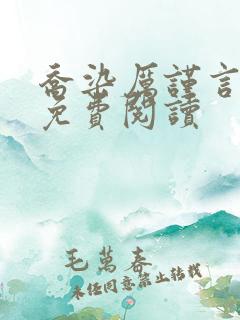 喬染厲謹言
免費閱讀
毛萬春
未经同意禁止转载